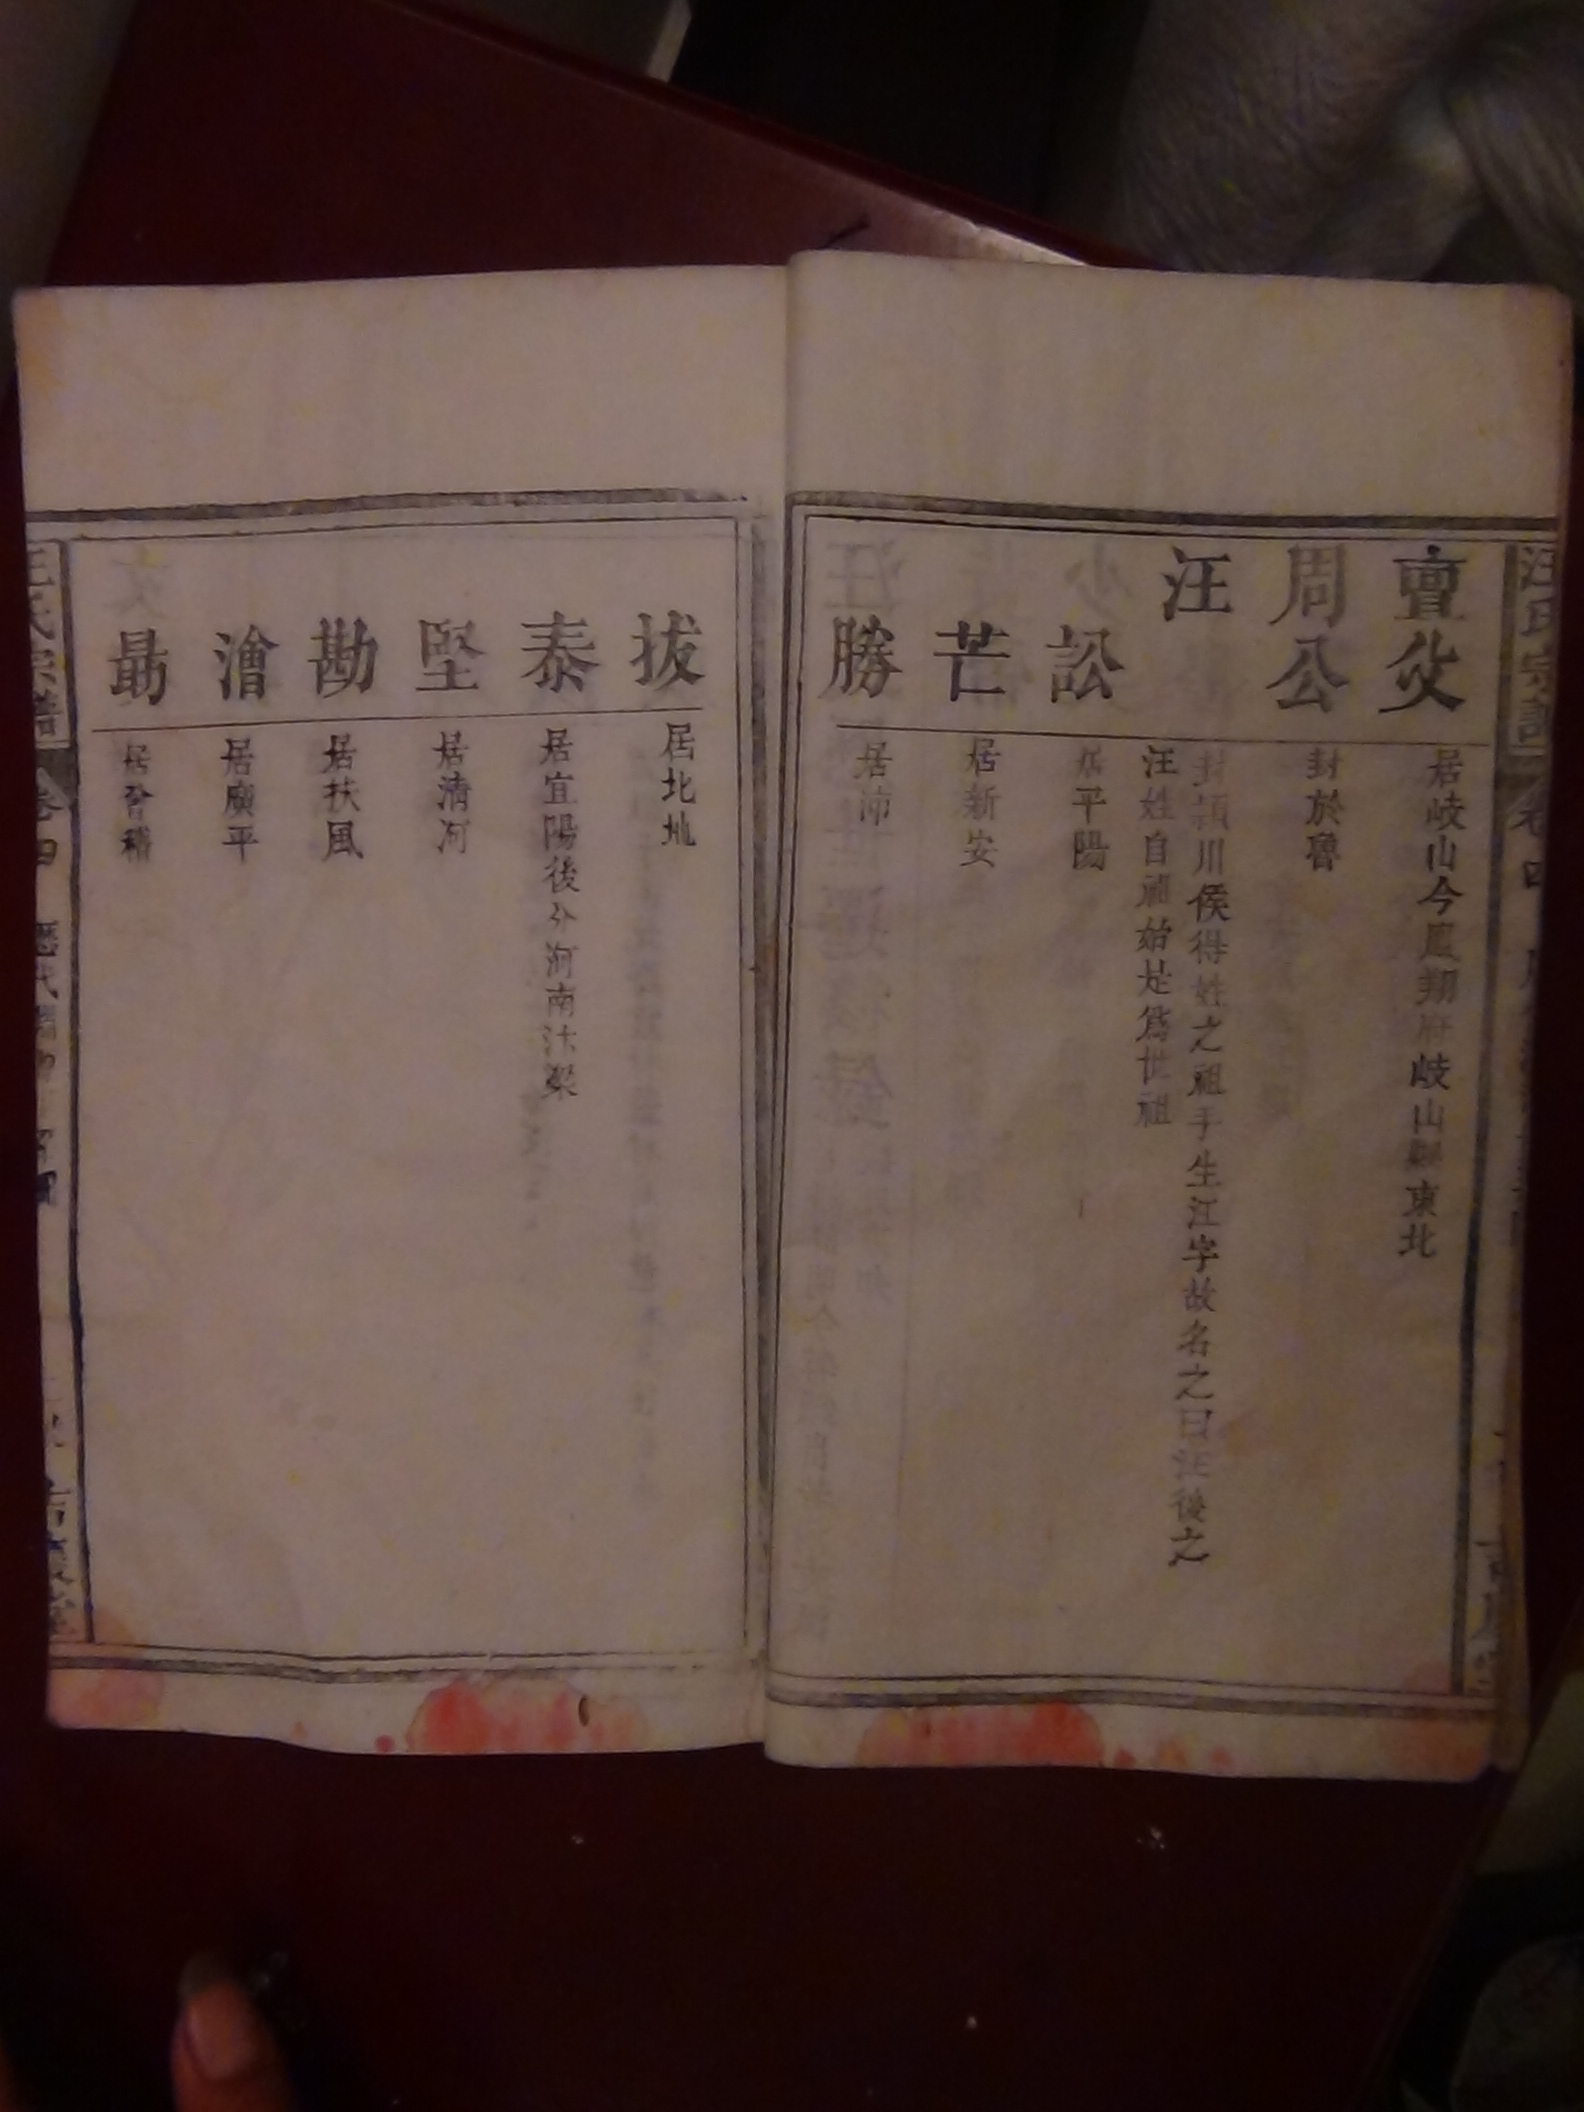 汪氏宗譜
卷四
亶父
居岐山今鳳翔府岐山縣東北
周公
封於魯
汪
封潁川侯得姓之祖手生江字故名之曰汪後之
汪姓自祖始是爲世祖
訟
居平陽
芒
居新安
勝
居沛
拔
居北地
泰
居宜陽後分河南汴梁
堅
居清河
勘
居扶風
澮
居廣平
勗
居會稽
汪氏宗譜
卷四
歷代